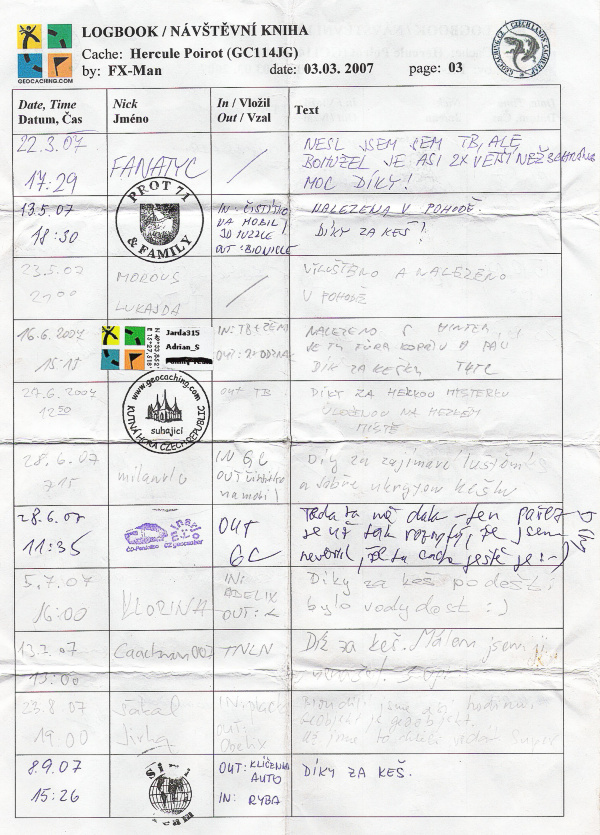 LOGBOOK / NÁVŠTĚVNÍ KNIHA
Cache: Hercule Poirot (GC114JG)
by: FX-Man date: 03.03. 2007 page: 03
GEOCACHING.COM
Date, Time Nick In / Vložil Text
Datum, Čas Jméno Out / Vzal
22.3.07 FANATYC / NESL JSEM SEM TB, ALE
17:29 BOHUŽEL JE ASI 2X VĚTŠÍ NEŽ
MOC DÍKY!
13.5.07 PROT 71 IN: ČISTÍTKO NALEZENA V POHODĚ.
18:30 & FAMILY NA MOBIL, DÍKY ZA KEŠ!
3D PUZZLE
OUT: BIONICLE
23.5.07 MOROUS / VYLUŠTĚNO A NALEZENO
21:00 LUKAJDA V POHODĚ
16.6.2007 Jarda315 IN: TB NALEZENO S
15:15 Adrian_S OUT: JE TU
DÍK ZA KEŠKU TFTC
27.6.2007 www.geocaching.com OUT TB DÍKY ZA HEZKOU MYSTERKU
12:50 suhajici ULOŽENOU NA HEZKÉM
KUTNÁ HORA CZECH REPUBLIC MÍSTĚ
28.6.07 IN GC Díky za zajímavé luštění
715 OUT čistítko a dobře ukrytou kešku
na mobil
28.6.07 OUT Teda ta mě dala - ten pařez
11:35 GC je už tak rozpitý, že jsem
nevěřil, že tu cache ještě je :-)
5.7.07 KLORINA IN: Díky za keš po dešti
16:00 ADELIX bylo vody dost :)
OUT: /
13.7.07 Caacman007 TNLN Dík za keš. Málem jsem ji
13:00
23.8.07 Šakal IN: plachy Bloudili jsme asi hodinu.
19:00 Jirka OUT:
Obelix
8.9.07 OUT: KLÍČENKA DÍKY ZA KEŠ.
15:26 AUTO
IN: RYBA